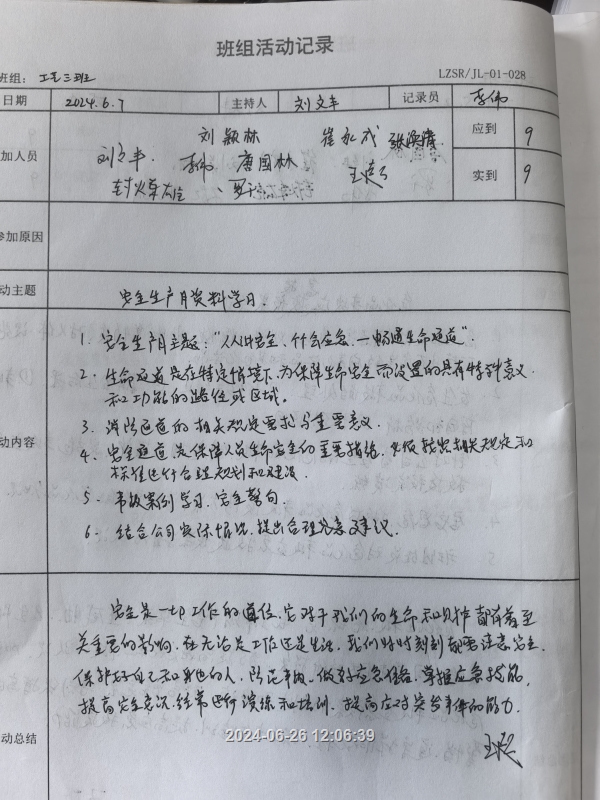 班组活动记录
班组: 工艺三班 LZSR/JL-01-028
日期 2024.6.7 主持人 刘文丰 记录员 李伟
加人员 刘颖林 崔永成 应到 9
刘文丰 李伟 唐国林 实到 9
参加原因
动主题 安全生产月资料学习
1. 安全生产月主题:"人人讲安全、个个会应急、—畅通生命通道".
2. 生命通道是在特定情境下,为保障生命安全而设置的具有特殊意义
和功能的路径或区域。
3. 消防通道的相关规定要求与重要意义.
动内容 4. 安全通道是保障人员生命安全的重要措施,必须按照相关规定和
标准进行合理规划和建设.
5. 事故案例学习,安全警句.
6. 结合公司实际情况,提出合理化意见建议.
安全是一切工作的首位,它对于我们的生命和财产都有着至
关重要的影响,在无论是工作还是生活,我们时时刻刻都要注意安全.
保护好自己和身边的人,做好应急准备,掌握应急技能,
提高安全意识,经常进行演练和培训,提高应对突发事件的能力.
动总结
2024-06-26 12:06:39